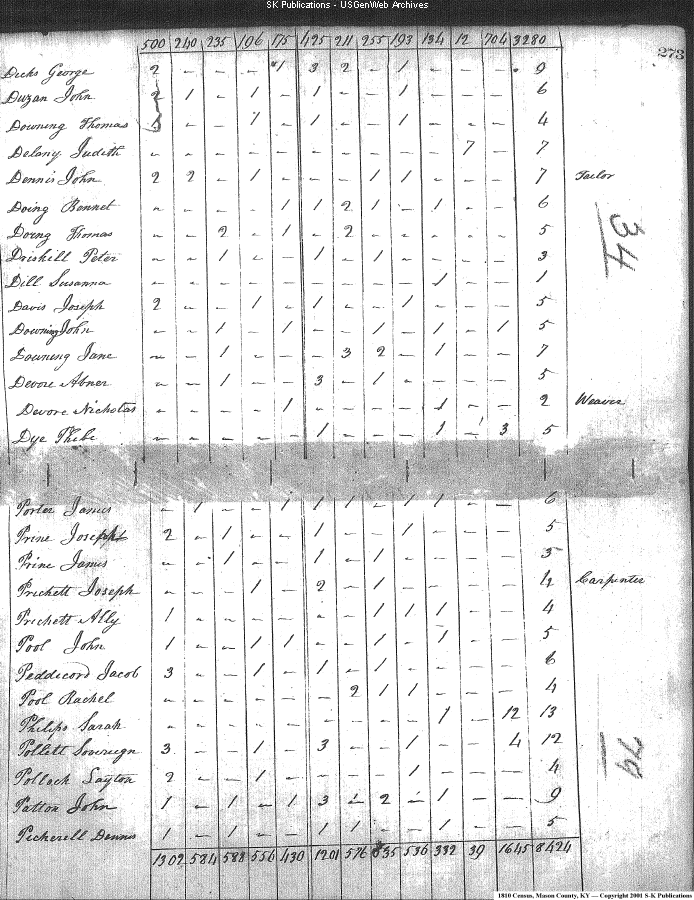 SK Publications - USGenWeb Archives
500 240 235 196 175 425 211 255 193 134 12 704 3280
273
Dicks George 2 - - - 1 3 2 - 1 - - - 9
Duzan John 2 1 - 1 - 1 - - 1 - - - 6
Downing Thomas - - 1 - 1 - - 1 - - - 4
Delany Judith - - - - - - - - - - 7 - 7
Dennis John 2 2 - 1 - - - 1 1 - - - 7 Tailor
Doing Bennet - - - - 1 1 2 1 - 1 - - 6
Doing Thomas - - 2 - 1 - 2 - - - - - 5
34
Driskill Peter - - 1 - - 1 - 1 - - - - 3
Dill Susanna - - - - - - - - - 1 - - 1
Davis Joseph 2 - - 1 - 1 - - 1 - - - 5
Downing John - - 1 - 1 - - 1 - 1 - 1 5
Downing Jane - - 1 - - - 3 2 - 1 - - 7
Devore Abner - - 1 - - 3 - 1 - - - - 5
Devore Nicholas - - - - 1 - - - - 1 - - 2 Weaver
Dye Phebe - - - - - 1 - - - 1 - 3 5
Porter James - 1 - - 1 1 1 - 1 1 - - 6
Prine Joseph 2 - 1 - - 1 - - 1 - - - 5
Prine James - - 1 - - 1 - 1 - - - - 3
Prichett Joseph - - - 1 - 2 - 1 - - - - 4 Carpenter
Prichett Ally 1 - - - - - - 1 1 1 - - 4
Pool John 1 - - 1 1 - - 1 - 1 - - 5
Peddicord Jacob 3 - - 1 - 1 - 1 - - - - 6
Pool Rachel - - - - - - 2 1 1 - - - 4
Philips Sarah - - - - - - - - - 1 - 12 13
Pollett Sovereign 3 - - 1 - 3 - - 1 - - 4 12
79
Pollock Layton 2 - - 1 - - - - 1 - - - 4
Patton John 1 - 1 - 1 3 - 2 - 1 - - 9
Pickerell Dennis 1 - 1 - 1 1 - - 1 - - 5
1302 584 588 556 430 1201 576 635 536 332 39 1645 8424
1810 Census, Mason County, KY — Copyright 2001 S-K Publications